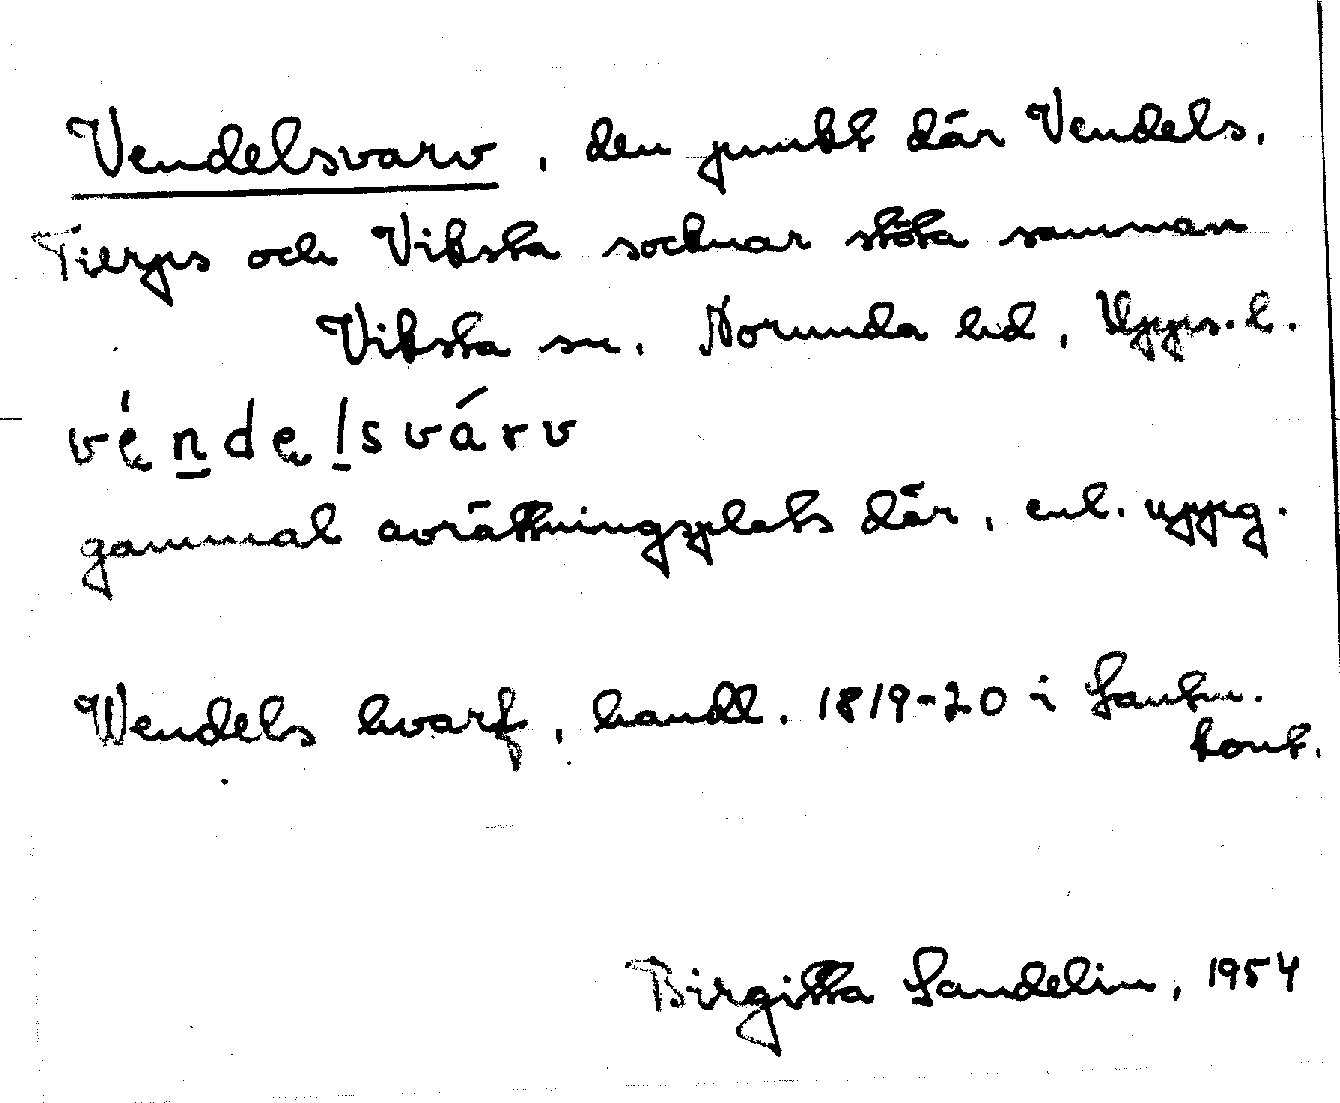 Vendelsvarv, den punkt där Vendels,
Tierps och Viksta socknar stöta samman
Viksta sn. Norunda hd, Upps.l.
véndelsvárv
gammal avrättningsplats där, enl. uppg.
Wendels hvarf, handl. 1819-20 i Lantm.
kont.
Birgitta Sandelin, 1954